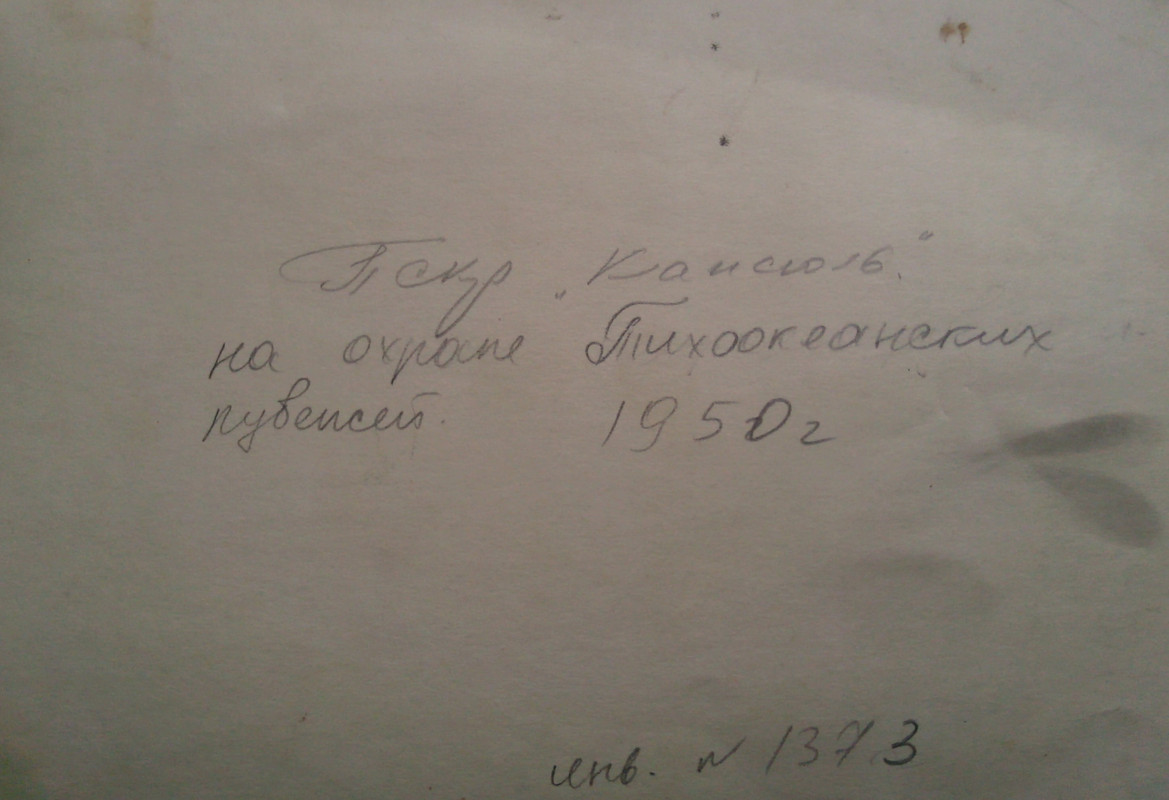 Пскр „Капсюль“.
на охране Тихоокеанских
рубежей. 1950 г
инв. № 1373